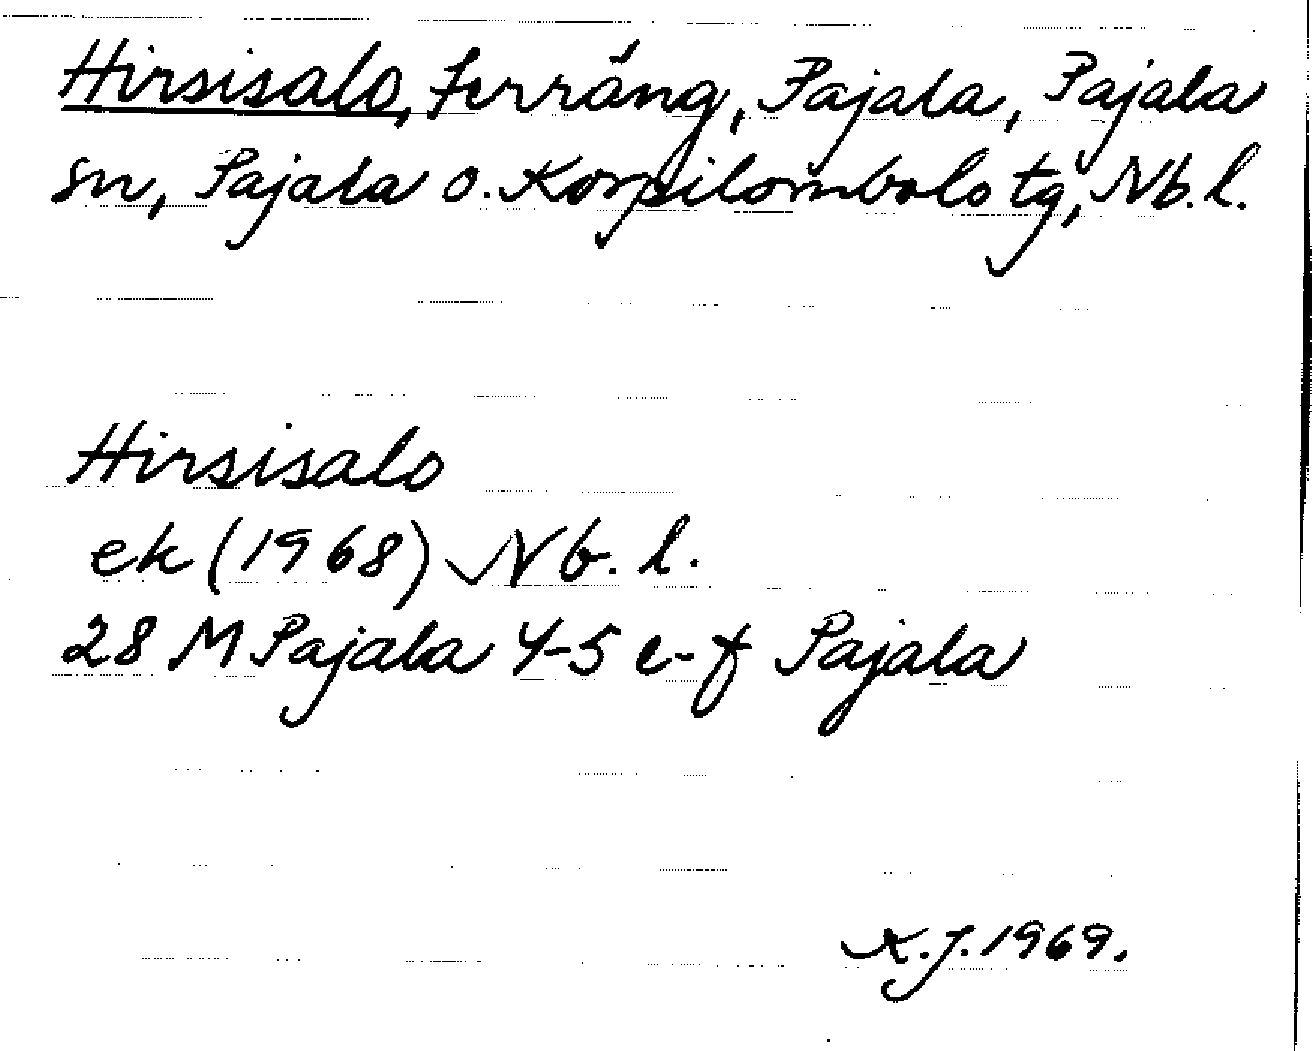 Hirsisalo, terräng, Pajala, Pajala
sn, Pajala o. Korpilombolo tg, Nb. l.
Hirsisalo
ek (1968) Nb. l.
28 M Pajala 4-5 e-f Pajala
K.J. 1969.